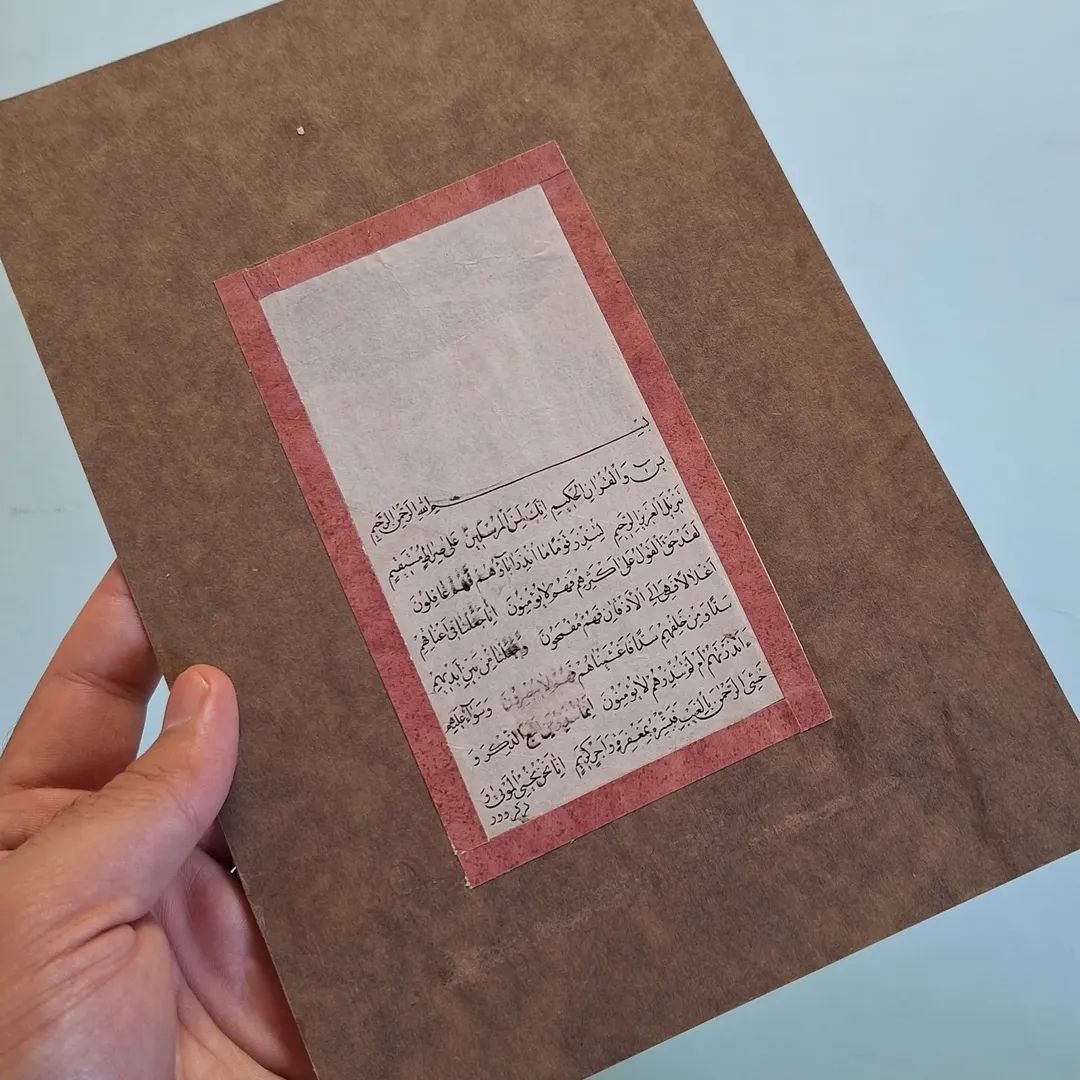 بِسْمِ اللهِ الرَّحْمٰنِ الرَّحِيمِ
يٰسٓ وَالْقُرْاٰنِ الْحَكِيمِ اِنَّكَ لَمِنَ الْمُرْسَلِينَ عَلٰى صِرَاطٍ مُسْتَقِيمٍ
تَنْزِيلَ الْعَزِيزِ الرَّحِيمِ لِتُنْذِرَ قَوْمًا مَا اُنْذِرَ اٰبَاؤُهُمْ فَهُمْ غَافِلُونَ
لَقَدْ حَقَّ الْقَوْلُ عَلٰى اَكْثَرِهِمْ فَهُمْ لَا يُؤْمِنُونَ اِنَّا جَعَلْنَا فِى اَعْنَاقِهِمْ
اَغْلَالًا فَهِىَ اِلَى الْاَذْقَانِ فَهُمْ مُقْمَحُونَ وَجَعَلْنَا مِنْ بَيْنِ اَيْدِيهِمْ
سَدًّا وَمِنْ خَلْفِهِمْ سَدًّا فَاَغْشَيْنَاهُمْ فَهُمْ لَا يُبْصِرُونَ وَسَوَآءٌ عَلَيْهِمْ
ءَاَنْذَرْتَهُمْ اَمْ لَمْ تُنْذِرْهُمْ لَا يُؤْمِنُونَ اِنَّمَا تُنْذِرُ مَنِ اتَّبَعَ الذِّكْرَ وَ
خَشِىَ الرَّحْمٰنَ بِالْغَيْبِ فَبَشِّرْهُ بِمَغْفِرَةٍ وَاَجْرٍ كَرِيمٍ اِنَّا نَحْنُ نُحْيِى الْمَوْتٰى وَ